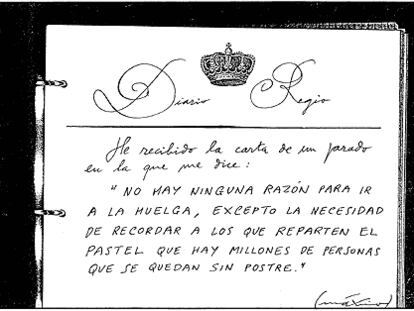 Diario Regio
He recibido la carta de un parado
en la que me dice:
"NO HAY NINGUNA RAZÓN PARA IR
A LA HUELGA, EXCEPTO LA NECESIDAD
DE RECORDAR A LOS QUE REPARTEN EL
PASTEL QUE HAY MILLONES DE PERSONAS
QUE SE QUEDAN SIN POSTRE."
(máximo)